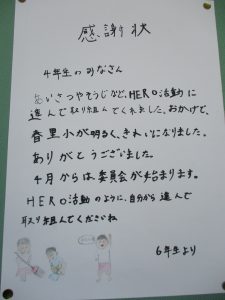 感謝状
4年生のみなさん
あいさつやそうじなど、HERO活動に
進んで取り組んでくれました。おかげで、
春里小が明るく、きれいになりました。
ありがとうございました。
4月からは、委員会が始まります。
HERO活動のように、自分から進んで
取り組んでくださいね
6年生より